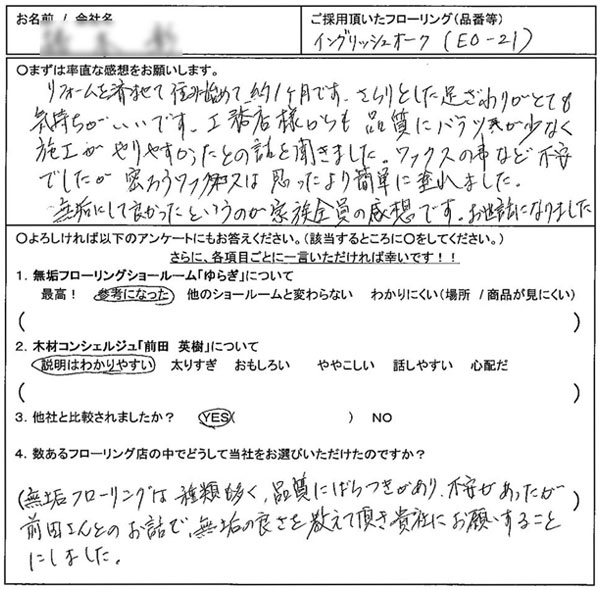 お名前 / 会社名
ご採用頂いたフローリング(品番等)
イングリッシュオーク (EO-21)
〇まずは率直な感想をお願いします。
リフォームを済ませて住み始めて約1ヶ月です。さらりとした足ざわりがとても
気持ちがいいです。工務店様からも品質にバラツキが少なく
施工がやりやすかったとの話を聞きました。ワックスの事など不安
でしたが蜜ろうワックスは思ったより簡単に塗れました。
無垢にして良かったというのが家族全員の感想です。お世話になりました
〇よろしければ以下のアンケートにもお答えください。(該当するところに〇をしてください。)
さらに、各項目ごとに一言いただければ幸いです!!
1. 無垢フローリングショールーム「ゆらぎ」について
最高! 参考になった 他のショールームと変わらない わかりにくい(場所 /商品が見にくい)
( )
2. 木材コンシェルジュ「前田 英樹」について
説明はわかりやすい 太りすぎ おもしろい ややこしい 話しやすい 心配だ
( )
3. 他社と比較されましたか? YES( ) NO
4. 数あるフローリング店の中でどうして当社をお選びいただけたのですか?
(無垢フローリングは種類も多く、品質にばらつきがあり、不安があったが)
前田さんとのお話で、無垢の良さを教えて頂き貴社にお願いすること
にしました。